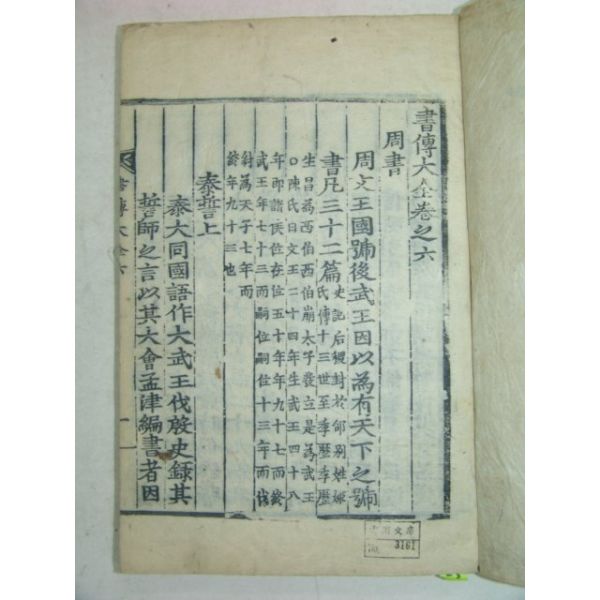 書傳大全卷之六
周書
周文王國號後武王因以為有天下之號
書凡三十二篇 史記后稷封於邰別姓姬
氏傳十三世至季歷季歷
生昌為西伯西伯崩太子發立是為武王
○陳氏曰文王二十四年生武王四十八
年即諸侯位在位五十年年九十七而終
武王年七十三而嗣位嗣位十三年而伐
紂為天子七年而
終年九十三也
泰誓上
泰大同國語作大武王伐殷史錄其
誓師之言以其大會孟津編書者因
書傳大全六
文庫
NO. 3161